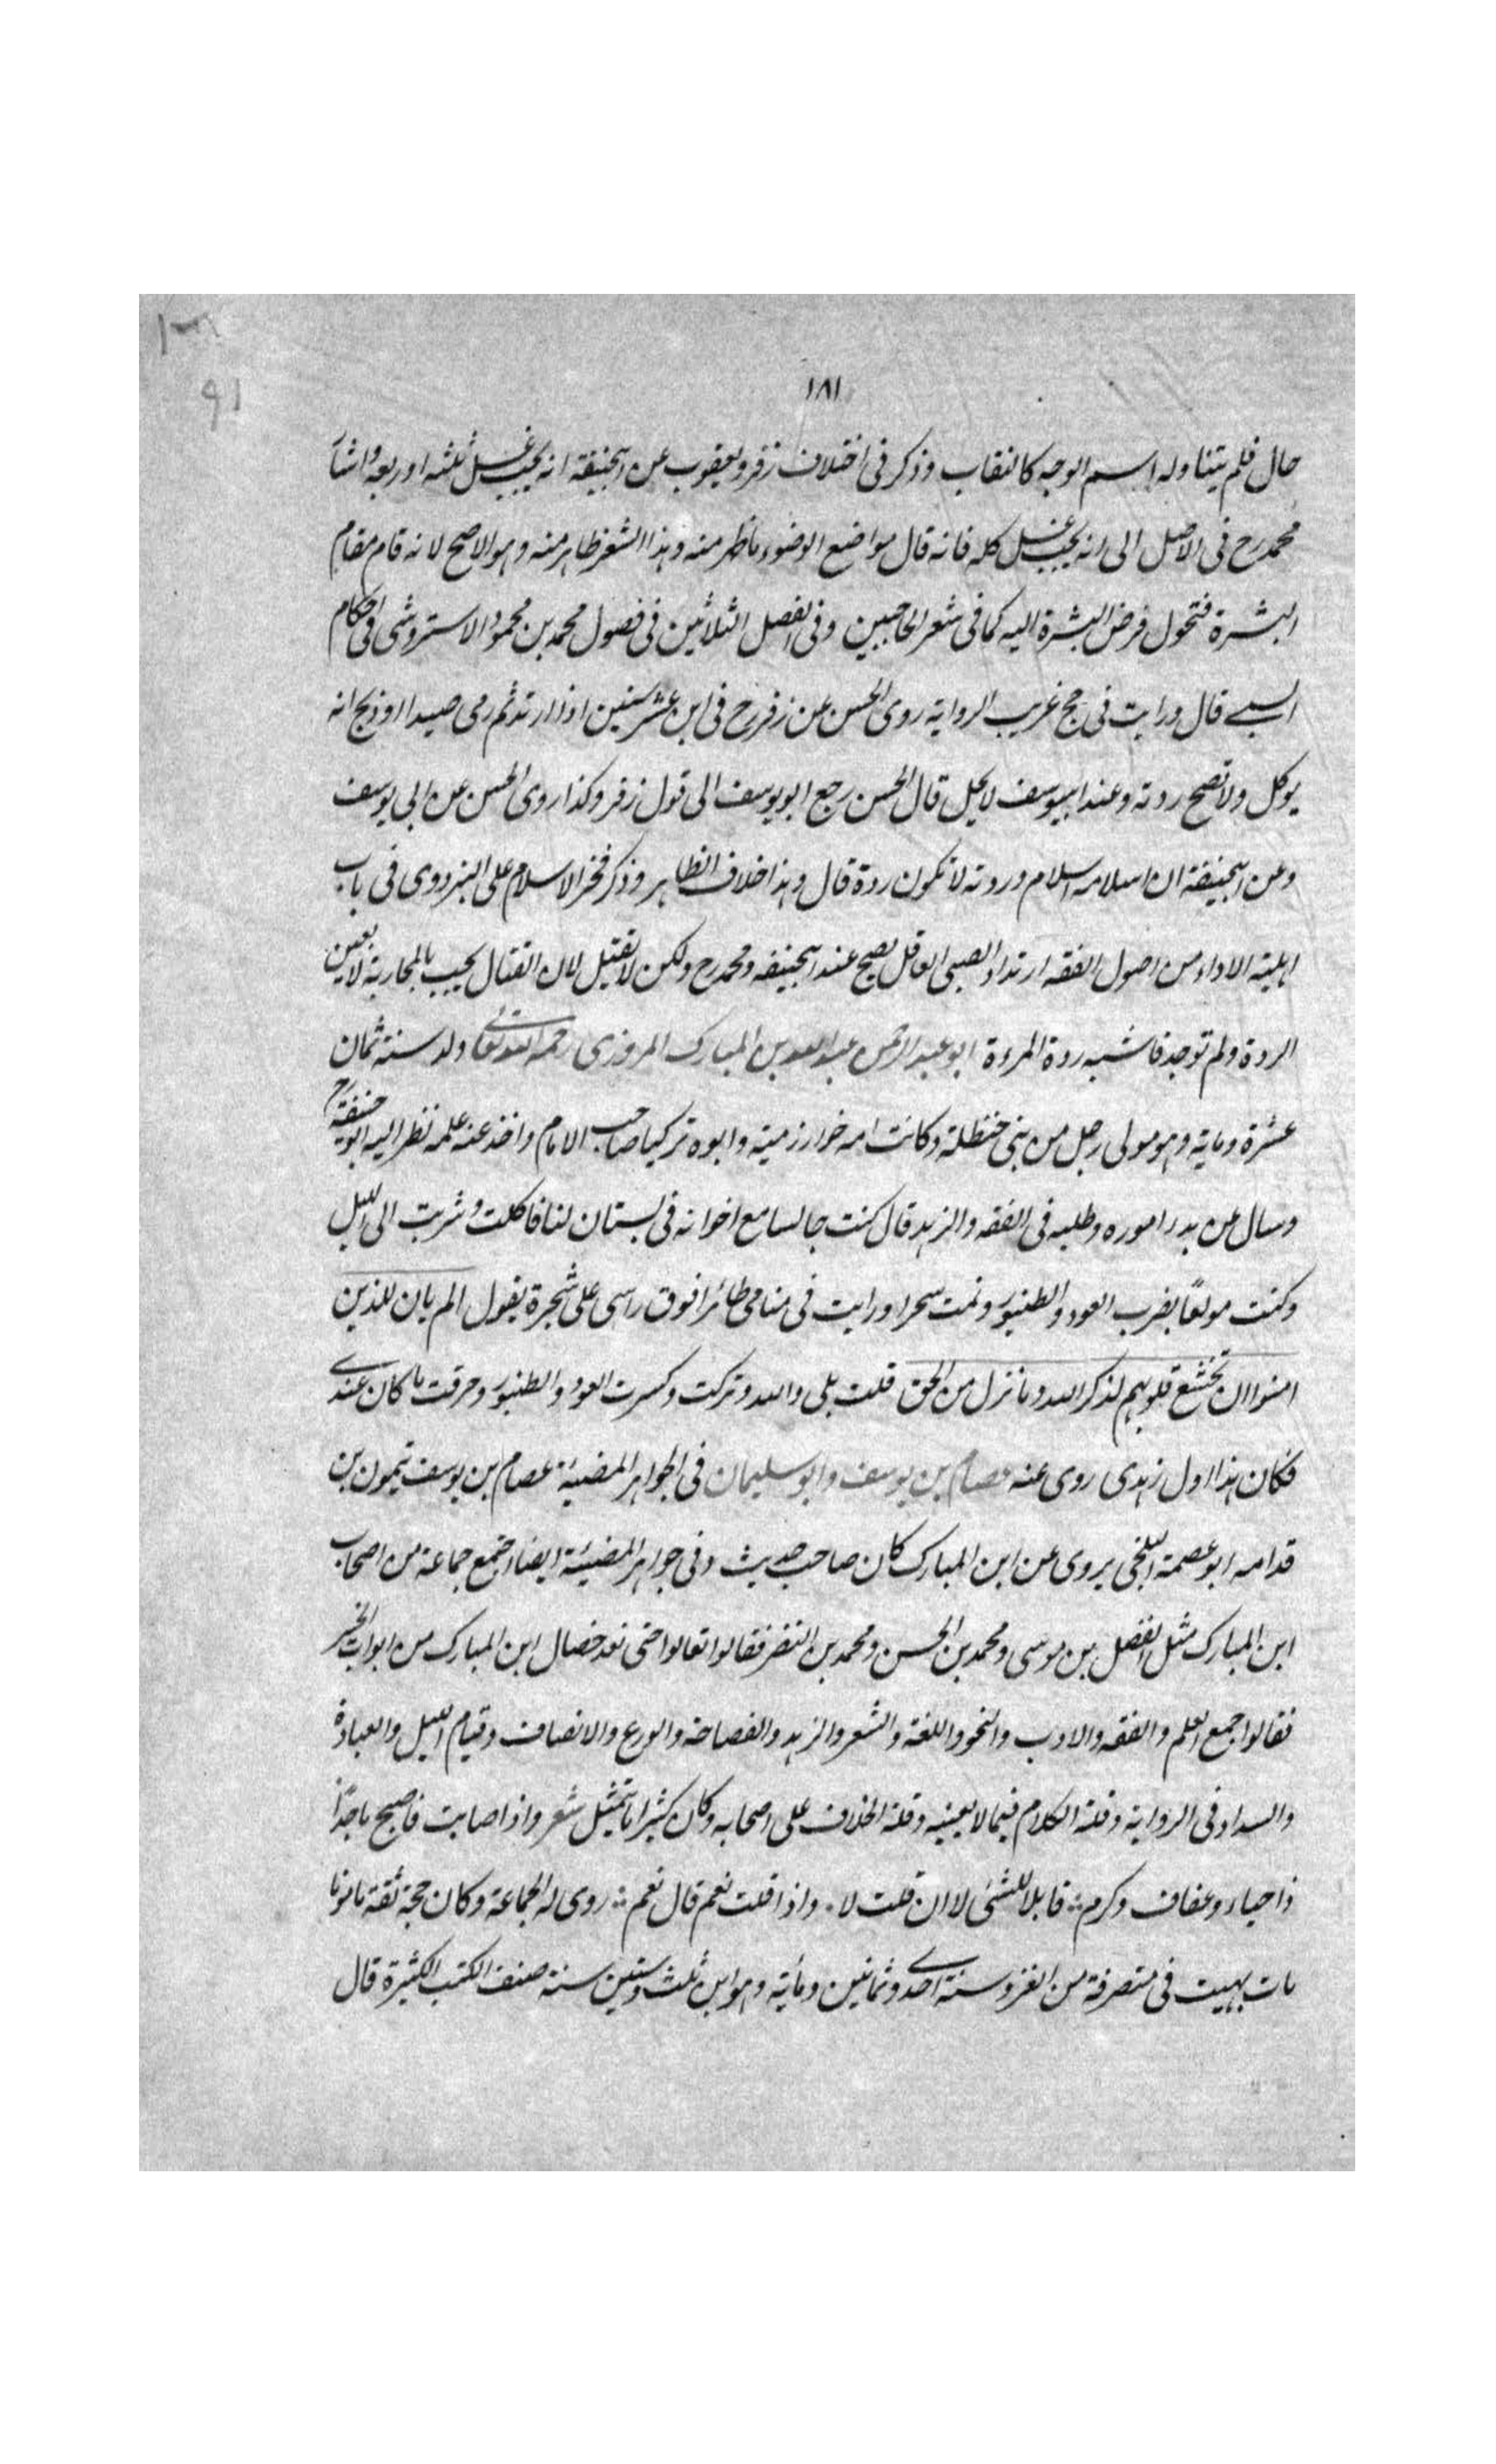 ١٨١
٩١
حال فلم يتناوله اسم الوجه كالنقاب وذكر فى اختلاف زفر ويعقوب عن ابيحنيفة انه يجب غسل ثلثه او ربعه واشار
محمد رح فى الاصل الى انه يجب غسل كله فانه قال مواضع الوضوء ما ظهر منه وهذا الشعر ظاهر منه وهو الاصح لانه قام مقام
البشرة فتحول فرض البشرة اليه كما فى شعر الحاجبين وفى الفصل الثلاثين فى فصول محمد بن محمود الاستروشنى فى احكام
السبے قال ورايت فى حج غريب الرواية روى الحسن عن زفر رح فى ابن عشر سنين اذا ارتد ثم رمى صيدا او ذبح انه
يوكل ولا تصح ردته وعند ابييوسف لا يحل قال الحسن رجع ابو يوسف الى قول زفر وكذا روى الحسن عن ابى يوسف
وعن ابيحنيفة ان اسلامه اسلام وردته لا تكون ردة قال وهذا خلاف الظاهر وذكر فخر الاسلام على البزدوى فى باب
اهلية الاداء من اصول الفقه ارتداد الصبى العاقل يصح عند ابيحنيفه ومحمد رح ولكن لا يقتل لان القتال يجب بالمحاربة لا بعين
الردة ولم توجد فاشبه ردة المرءة ابو عبد الرحمن عبد الله بن المبارك المروزى رحمه الله تعالى ولد سنة ثمان
عشرة وماية وهو مولى رجل من بنى حنظلة وكانت امه خوارزمية وابوه تركيا صاحب الامام واخذ عنه علمه نظر اليه ابو حنيفة رح
وسال عن بدر اموره وطلبه فى الفقه والزهد قال كنت جالسا مع اخوانه فى بستان لنا فاكلت وشربت الى الليل
وكنت مولعًا بضرب العود والطنبور ونمت سحرا ورايت فى منامى طائرا فوق راسى على شجرة يقول الم يان للذين
امنوا ان تخشع قلوبهم لذكر الله وما نزل من الحق قلت بلى والله وتركت وكسرت العود والطنبور وحرقت ما كان عندى
فكان هذا اول زهدى روى عنه عصام بن يوسف وابو سليمان فى الجواهر المضيئة عصام بن يوسف بن ميمون بن
قدامه ابو عصمة البلخى يروى عن ابن المبارك كان صاحب حديث وفى جواهر المضيئة ايضا اجتمع جماعة من اصحاب
ابن المبارك مثل الفضل بن موسى ومحمد بن الحسن ومحمد بن النضر فقالوا تعالوا حتى نعد خصال ابن المبارك من ابواب الخير
فقالوا جمع العلم والفقه والادب والنحو واللغة والشعر والزهد والفصاحة والورع والانصاف وقيام الليل والعبادة
والسداد فى الرواية وقلة الكلام فيما لا يعنيه وقلة الخلاف على اصحابه وكان كثيرا ما يتمثل شعر واذا صاحبت فاصحب ماجدًا
ذا حياء وعفاف وكرم قابلا للشئى لا ان قلت لا واذا قلت نعم قال نعم روى له الجماعة وكان حجة ثقة مامونا
مات بهيت فى منصرفة من الغزو سنة احدى وثمانين ومأية وهو ابن ثلث وستين سنة صنف الكتب الكثيرة قال